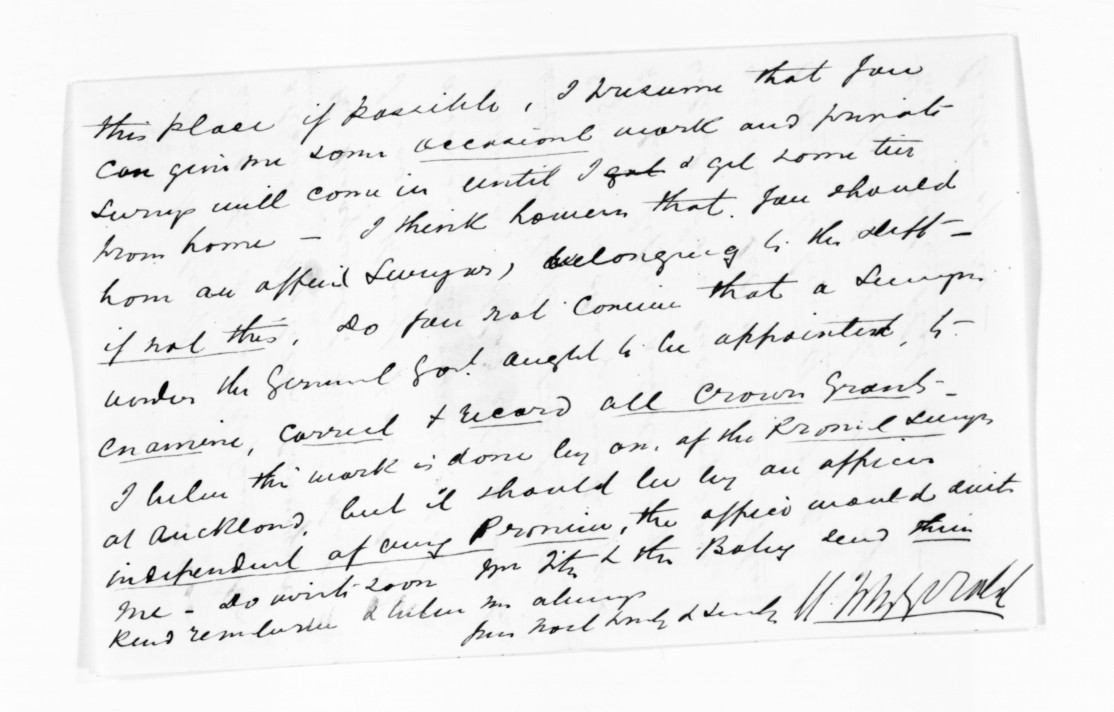 this place if possible, I presume that you
can give me some occasional work and private
Surveys will come in until I got & get some ties
from home — I think however that you should
have an official Surveyor, belonging to the dept —
if not this, do you not conceive that a Surveyor
under the General Govt. ought to be appointed, to
examine, correct & record all Crown Grants —
I believe this work is done by one of the Provincial Surveyors
at Auckland, but it should be by an officer
independent of any Province, the office would suit
me — do write soon Mrs Fitz & the Baby send their
kind remembrances & believe me always
yours most truly & sincerely